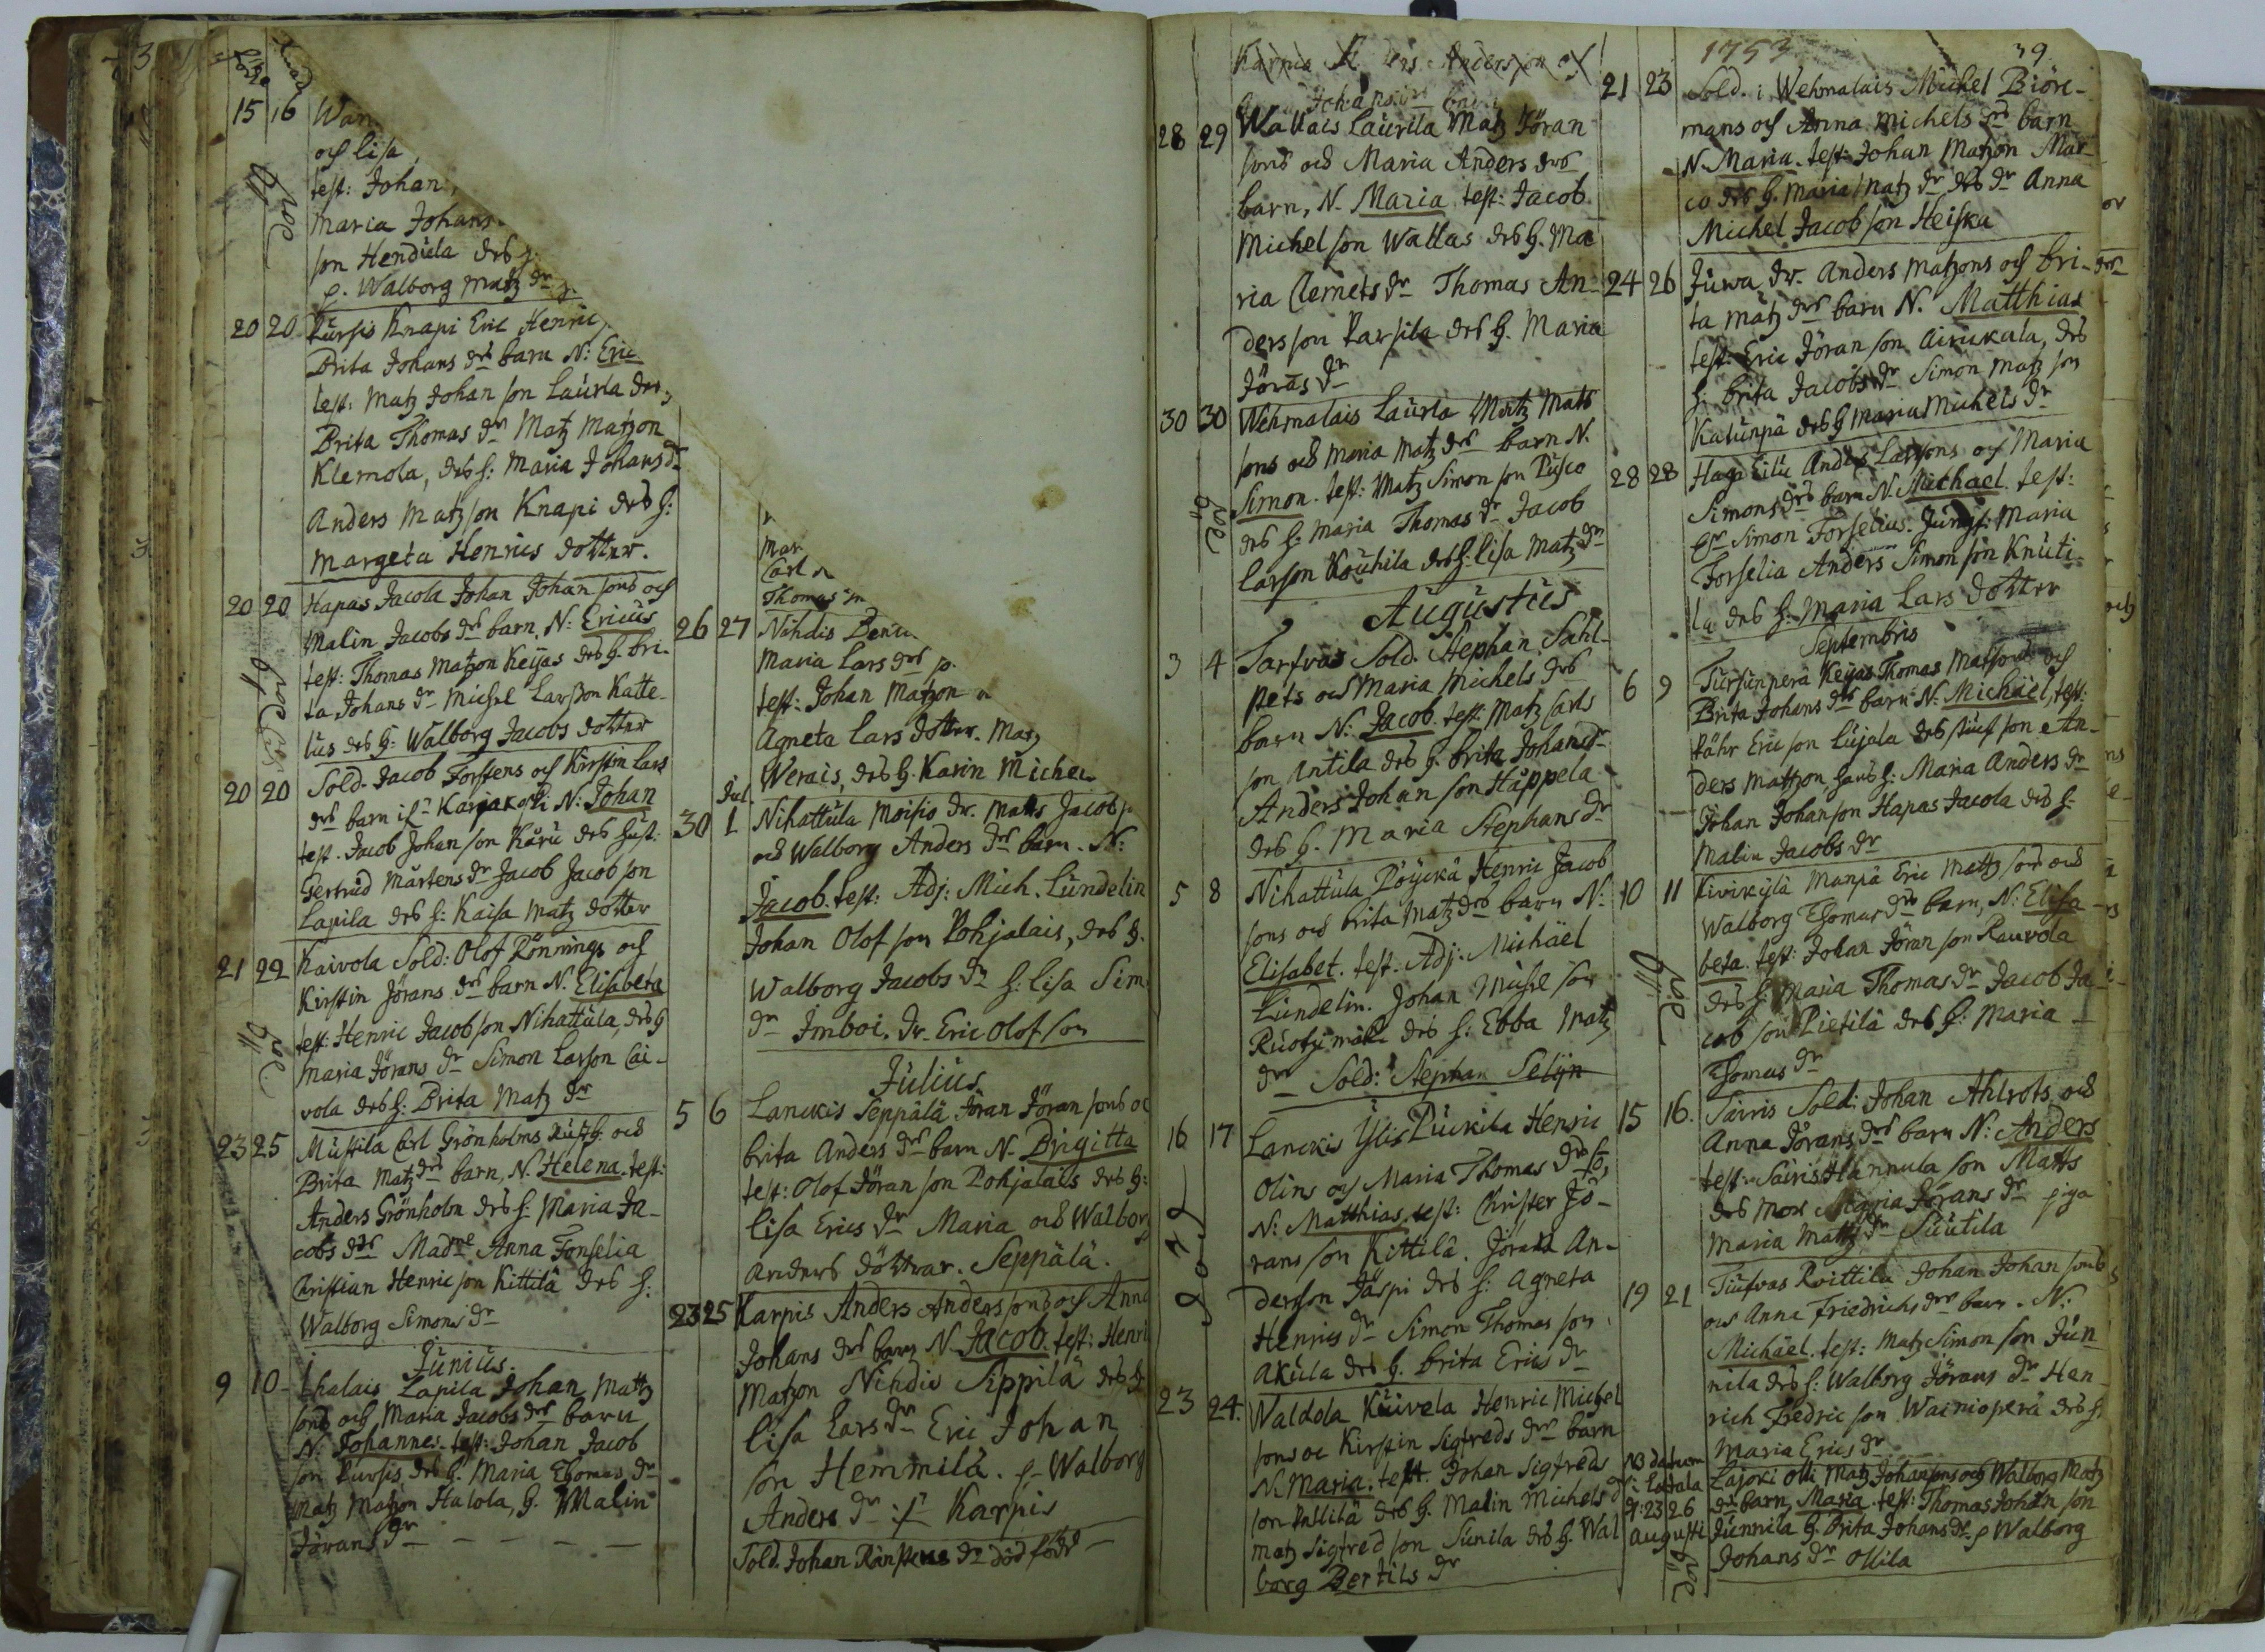 15 16
och Lisa
test: Johan
Maria Johans
son Hendula des h.
p. Walborg Matz dr
20 20 Kursis Knapi Eric Henric
Brita Johans drs barn N: Eric
test: Matz Johan son Laurla des
Brita Thomas dr Matz Matzon
Klemola, des h: Maria Johans dr
Anders Matz son Knapi des h:
Margeta Henrics dotter.
20 20 Hapas Jacola Johan Johan sons och
Malin Jacobs drs barn, N: Ericus
test: Thomas Matzon Keijas des h. Bri-
ta Johans dr Michel Larsson Katte-
lus des h: Walborg Jacobs dotter
20 20 Sold. Jacob Forstens och Kirstin Lars
drs barn N: Johan
test. Jacob Johan son Karu des hust.
Gertrud Mårtens dr Jacob Jacob son
Lapila des h: Kaisa Matz dotter
21 22 Kaivola Sold: Olof Rönnings och
Kirstin Jörans drs barn N. Elisabeta
test: Henric Jacob son Nihattula, des h
Maria Jörans dr Simon Larson Cai-
vola des h: Brita Matz dr
23 25 Mustila Carl Grönholms och
Brita Matz drs barn, N. Helena. test:
Anders Grönholm des h: Maria Ja-
cobs dr Madme Anna Forselia
Christian Henric son Kittilä des h:
Walborg Simons dr
Junius.
9 10 Ihalais Lapila Johan Mattz
sons och Maria Jacobs drs barn
N: Johannes. test: Johan Jacob
son Kursis des h. Maria Thomas dr
Matz Matzon Halola, h. Malin
Jörans dr
Mar
Carl
Thomas
26 27 Nihdis
Maria Lars drs
test: Johan Matzon
Agneta Lars dotter. Matz
Werais, des h. Karin Michel
Jul.
30 1 Nihattula Moisio dr. Matts Jacob
och Walborg Anders drs barn. N:
Jacob. test: Adj: Mich. Lundelin
Johan Olof son Pohjalais, des h.
Walborg Jacobs dr h: Lisa Sim
dr Imboi. dr. Eric Olof son
Julius.
5 6 Lanckis Seppälä Jöran Jöran sons oc
Brita Anders drs barn N. Brigitta
test: Olof Jöran son Pohjalais des h:
Lisa Erics dr Maria och Walborg
Anders döttrar. Seppälä.
23 25 Karpis Anders Anders sons och Anna
Johans drs barn N. Jacob. test: Henri
Matzon Nihdis Sippilä des h
Lisa Lars dr Eric Johan
son Hemmilä. p. Walborg
Anders dr Karpis
Sold. Johan dr död född
Karpia Anderson och
Johans drs barn
28 29 Wallais Laurila Matz Jöran
sons och Maria Anders drs
barn, N. Maria test: Jacob
Michel son Wallas des h. Ma
ria Clemets dr Thomas An-
derson Karsila des h. Maria
Jörans dr
30 30 Wehmalais Laurla Matz Mats
sons och Maria Matz drs barn N.
Simon. test: Matz Simon son Pusco
des h. Maria Thomas dr Jacob
Larson Kouhila des h. Lisa Matz dr
Augustus
3 4 Tarfvas Sold. Stephan Sahl-
och Maria Michels drs
barn N. Jacob. test. Matz Carls
son Antila des h. Brita Johans dr
Anders Johan son Häppela
des h. Maria Stephans dr
5 8 Nihattula Pöyckä Henric Jacob
sons och Brita Matz drs barn N:
Elisabet. test: Adj. Michäel
Lundelin. Johan Michel son
des h: Ebba Matz
dr Sold: Stephan Selijn
16 17 Lanckis Ylis Puckila Henric
Olins och Maria Thomas drs b,
N: Matthias. test: Christer Jö-
rans son Kittilä. Jöran An-
derson Jäspi des h: Agneta
Henrics dr Simon Thomas son
Akula des h. Brita Erics dr
23 24. Waldola Kuivela Henric Michel
sons oc Kirstin Sigfreds drs barn
N. Maria. test. Johan Sigfreds
son Pullila des h. Malin Michels dr
Matz Sigfred son Sunila des h. Wal
borg Bertils dr
1753 39.
21 23 Sold. i Wehmalais Mickel Biörc-
mans och Anna Michels drs barn
N. Maria. test: Johan Matzon Mar-
co des h. Maria Matz dr Anna
Michel Jacob son Heiska
24 26 Juwa dr. Anders Matzons och Bri-
ta Matz drs barn N. Matthias
test: Eric Jöran son Airickala, des
h: Brita Jacobs dr Simon Matz son
Katunpä des h Maria Michels dr
28 28 Haga Eilu Anders Larsons och Maria
Simons drs barn N. Michael. test:
Simon Forselius. Jungf: Maria
Forselia Anders Simon son Knuti-
la des h: Maria Lars dotter
Septembris
6 9 Tursunperä Keijas Thomas Matsons och
Brita Johans drs barn N: Michäel, test:
Eric son Lujala des An-
ders Mattzon, hans h: Maria Anders dr
Johan Johan son Hapas Jacola des h:
Malin Jacobs dr
10 11 Kivikylä Manpä Eric Mattz sons och
Walborg Thomas drs barn, N: Elisa-
beta. test: Johan Jöran son Rauvola
des h: Maria Thomas dr Jacob Ja-
cob son Pietilä des h: Maria
Thomas dr
15 16. Säiris Sold: Johan Ahlrots och
Anna Jörans drs barn N: Anders
test: Säiris Hannula son Matts
des Mor Maria Jörans dr piga
Maria Mattz dr Suutila
19 21 Tiufvas Roittila Johan Johan sons
och Anna Friedrichs drs barn. N:
Michäel. test: Matz Simon son Jun-
nila des h: Walborg Jörans dr Hen-
rich Fredric son Wainioperä des h:
Maria Erics dr
NB datum i Latala
d: 23 26 Augusti
Lajoki Olli Matz Johansons och Walborg Matz
drs barn, Maria. test: Thomas Johan son
Junnila h. Brita Johans dr p Walborg
Johans dr Ollila